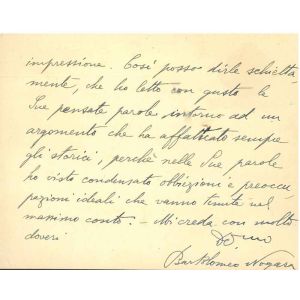 impressione. Così posso dirle schietta-
mente, che ho letto con gusto le
Sue pensate parole intorno ad un
argomento che ha affaticato sempre
gli storici, perché nelle Sue parole
ho visto condensato obbiezioni e preoccu-
pazioni ideali che vanno tenute nel
massimo conto. - Mi creda con molto
doveri
Bartolomeo Nogara